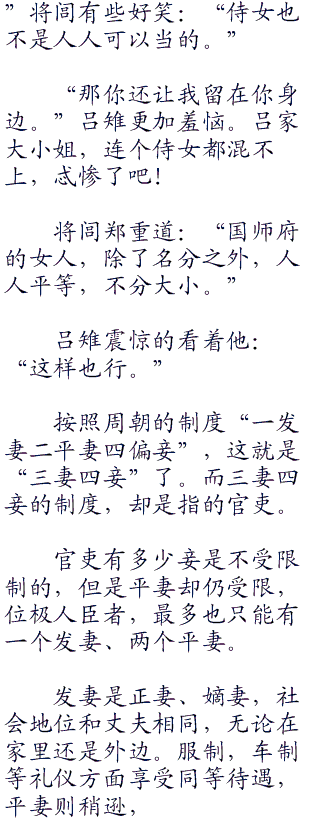 ”将闾有些好笑：“侍女也
不是人人可以当的。”
“那你还让我留在你身
边。”吕雉更加羞恼。吕家
大小姐，连个侍女都混不
上，忒惨了吧！
将闾郑重道：“国师府
的女人，除了名分之外，人
人平等，不分大小。”
吕雉震惊的看着他：
“这样也行。”
按照周朝的制度“一发
妻二平妻四偏妾”，这就是
“三妻四妾”了。而三妻四
妾的制度，却是指的官吏。
官吏有多少妾是不受限
制的，但是平妻却仍受限，
位极人臣者，最多也只能有
一个发妻、两个平妻。
发妻是正妻、嫡妻，社
会地位和丈夫相同，无论在
家里还是外边。服制，车制
等礼仪方面享受同等待遇，
平妻则稍逊，